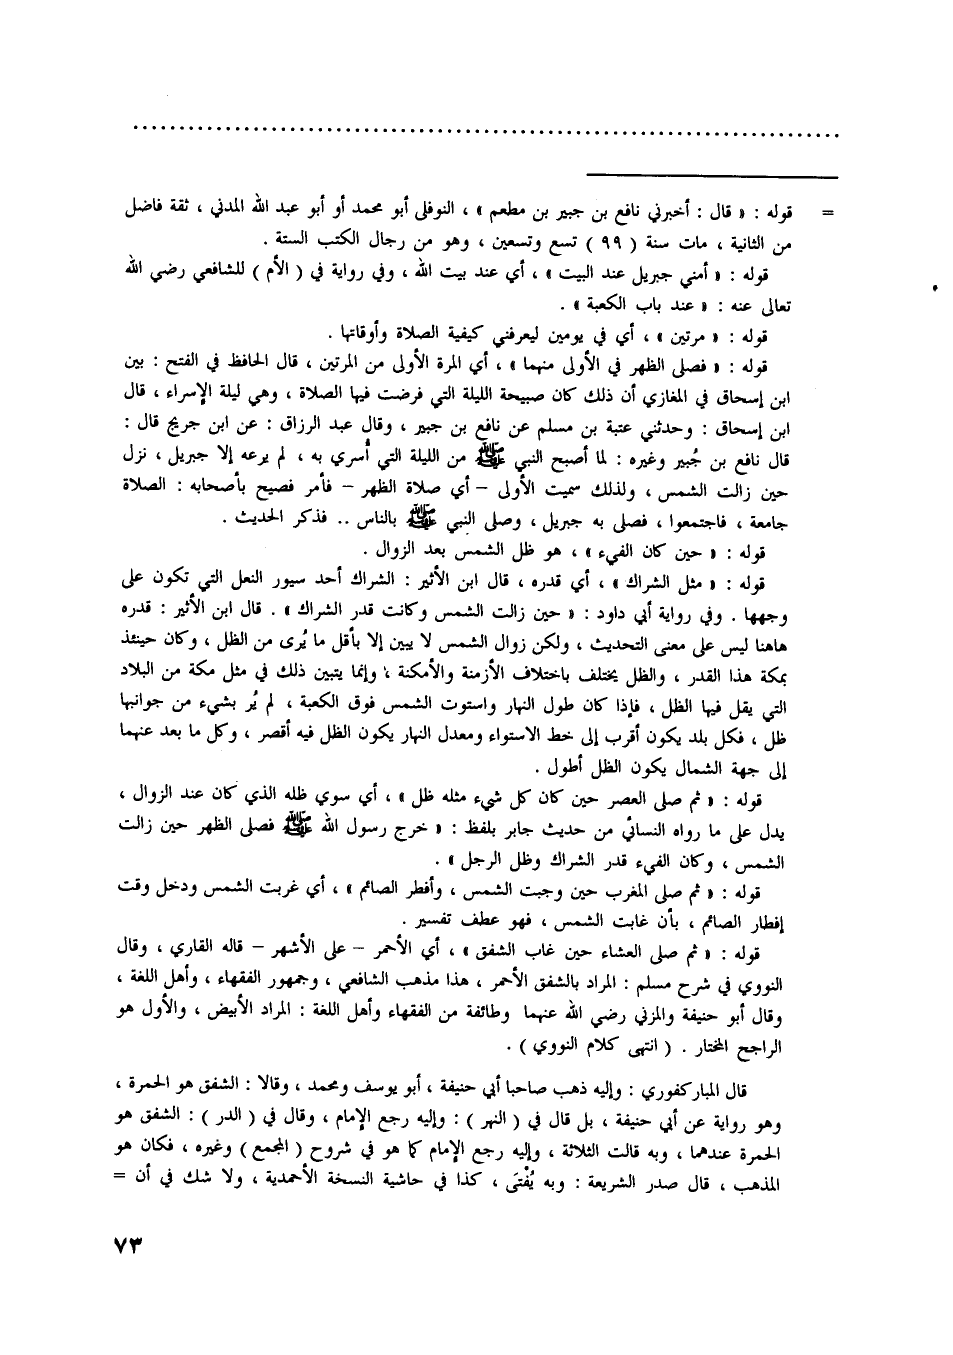 = قوله : « قال : أخبرني نافع بن جبير بن مطعم » ، النوفلى أبو محمد أو أبو عبد الله المدني ، ثقة فاضل
من الثانية ، مات سنة ( ٩٩ ) تسع وتسعين ، وهو من رجال الكتب الستة .
قوله : « أمني جبريل عند البيت » ، أي عند بيت الله ، وفي رواية في ( الأم ) للشافعي رضي الله
تعالى عنه : « عند باب الكعبة » .
قوله : « مرتين » ، أي في يومين ليعرفني كيفية الصلاة وأوقاتها .
قوله : « فصلى الظهر في الأولى منهما » ، أي المرة الأولى من المرتين ، قال الحافظ في الفتح : بين
ابن إسحاق في المغازي أن ذلك كان صبيحة الليلة التي فرضت فيها الصلاة ، وهي ليلة الإسراء ، قال
ابن إسحاق : وحدثني عتبة بن مسلم عن نافع بن جبير ، وقال عبد الرزاق : عن ابن جريج قال :
قال نافع بن جُبير وغيره : لما أصبح النبي ﷺ من الليلة التي أُسري به ، لم يرعه إلا جبريل ، نزل
حين زالت الشمس ، ولذلك سميت الأولى – أي صلاة الظهر – فأمر فصيح بأصحابه : الصلاة
جامعة ، فاجتمعوا ، فصلى به جبريل ، وصلى النبي ﷺ بالناس .. فذكر الحديث .
قوله : « حين كان الفيء » ، هو ظل الشمس بعد الزوال .
قوله : « مثل الشراك » ، أي قدره ، قال ابن الأثير : الشراك أحد سيور النعل التي تكون على
وجهها . وفي رواية أبي داود : « حين زالت الشمس وكانت قدر الشراك » . قال ابن الأثير : قدره
هاهنا ليس على معنى التحديث ، ولكن زوال الشمس لا يبين إلا بأقل ما يُرى من الظل ، وكان حينئذ
بمكة هذا القدر ، والظل يختلف باختلاف الأزمنة والأمكنة ، وإنما يتبين ذلك في مثل مكة من البلاد
التي يقل فيها الظل ، فإذا كان طول النهار واستوت الشمس فوق الكعبة ، لم يُر بشيء من جوانبها
ظل ، فكل بلد يكون أقرب إلى خط الاستواء ومعدل النهار يكون الظل فيه أقصر ، وكل ما بعد عنهما
إلى جهة الشمال يكون الظل أطول .
قوله : « ثم صلى العصر حين كان كل شيء مثله ظل » ، أي سوي ظله الذي كان عند الزوال ،
يدل على ما رواه النسائي من حديث جابر بلفظ : « خرج رسول الله ﷺ فصلى الظهر حين زالت
الشمس ، وكان الفيء قدر الشراك وظل الرجل » .
قوله : « ثم صلى المغرب حين وجبت الشمس ، وأفطر الصائم » ، أي غربت الشمس ودخل وقت
إفطار الصائم ، بأن غابت الشمس ، فهو عطف تفسير .
قوله : « ثم صلى العشاء حين غاب الشفق » ، أي الأحمر – على الأشهر – قاله القاري ، وقال
النووي في شرح مسلم : المراد بالشفق الأحمر ، هذا مذهب الشافعي ، وجمهور الفقهاء ، وأهل اللغة ،
وقال أبو حنيفة والمزني رضي الله عنهما وطائفة من الفقهاء وأهل اللغة : المراد الأبيض ، والأول هو
الراجح المختار . ( انتهى كلام النووي ) .
قال المباركفوري : وإليه ذهب صاحبا أبي حنيفة ، أبو يوسف ومحمد ، وقالا : الشفق هو الحمرة ،
وهو رواية عن أبي حنيفة ، بل قال في ( النهر ) : وإليه رجع الإمام ، وقال في ( الدر ) : الشفق هو
الحمرة عندهما ، وبه قالت الثلاثة ، وإليه رجع الإمام كما هو في شروح ( المجمع ) وغيره ، فكان هو
المذهب ، قال صدر الشريعة : وبه يُفْتَى ، كذا في حاشية النسخة الأحمدية ، ولا شك في أن =
٧٣